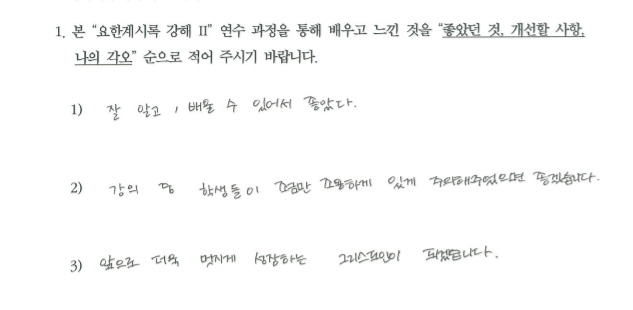 1. 본 “요한계시록 강해 II” 연수 과정을 통해 배우고 느낀 것을 “좋았던 것, 개선할 사항,
나의 각오” 순으로 적어 주시기 바랍니다.
1) 잘 알고, 배울 수 있어서 좋았다.
2) 강의 때 학생들이 조금만 조용하게 있게 주의해주었으면 좋겠습니다.
3) 앞으로 더욱 멋지게 성장하는 그리스도인이 되겠습니다.